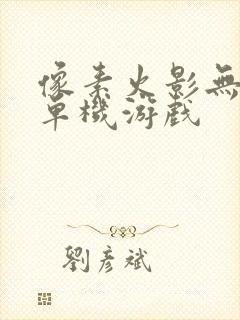 像素火影無
單機游戲
劉彥斌